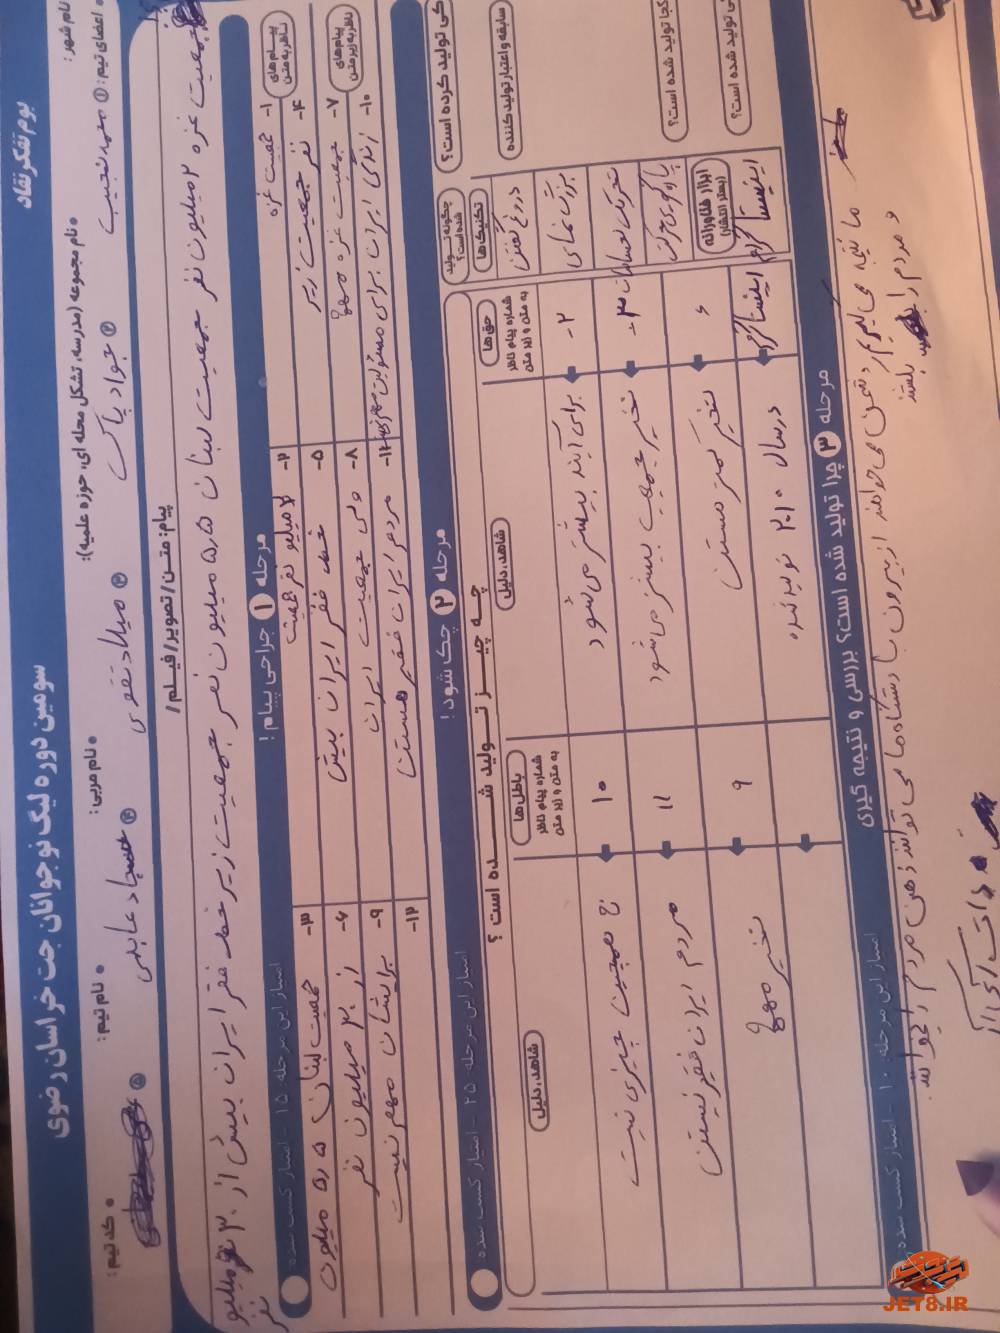 بوم تفکر نقاد
سومین دوره لیگ نوجوانان جت خراسان رضوی
نام شهر:
• نام مجموعه (مدرسه، تشکل محله ای، حوزه علمیه):
• نام مربی:
• نام تیم:
• کد تیم:
• اعضای تیم: ① محمد نجیب ② جواد پاک ③ میلاد تقوی ④ سجاد عابدی ⑤
پیام: متن / تصویر / فیلم /
جمعیت غزه ۲ میلیون نفر جمعیت لبنان ۵٫۵ میلیون نفر جمعیت زیر خط فقر ایران بیش از ۳۰ میلیون نفر
مرحله ۱ جراحی پیام!
امتیاز این مرحله ۱۵ - امتیاز کسب شده
پیام های ناظر به متن
۱- جمعیت غزه
۲- ۲ میلیون نفر
۳- جمعیت لبنان ۵٫۵ میلیون نفر
۴- نفر جمعیت زیر
۵- خط فقر ایران بیش
۶- از ۳۰ میلیون نفر
پیام های ناظر به زیر متن
۷- جمعیت غزه مهم
۸- ولی جمعیت ایران
۹- برایشان مهم نیست
۱۰- زندگی ایران برای مسئولین مهم
۱۱- مردم ایران فقیر هستن
۱۲-
مرحله ۲ چک شود!
امتیاز این مرحله ۲۵ - امتیاز کسب شده
کی تولید کرده است؟
سابقه و اعتبار تولید کننده
کجا تولید شده است؟
کی تولید شده است؟
چگونه تولید شده است؟
تکنیک ها
دروغ گفتن
بزرگ نمایی
تحریک احساسات
ابزار فناورانه (بستر انتشار)
اینستاگرام
چه چیز تولید شده است؟
حق ها
شماره پیام ناظر به متن و زیر متن
شاهد، دلیل
باطل ها
شماره پیام ناظر به متن و زیر متن
شاهد، دلیل
۲- برای آیند بیشتر می شود
۱۰ نه همچین چیزی نیست
۳- نخیر جمعیت بیشتر می شود
۱۱ مردم ایران فقیر نیستن
۶ نخیر کمتر هستن
۹ نخیر مهم
اینستاگرام در سال ۲۰۱۰ تولید شده
مرحله ۳ چرا تولید شده است؟ بررسی و نتیجه گیری
امتیاز این مرحله ۱۰ - امتیاز کسب شده
ما نتیجه می گیریم دشمن می خواهند از بیرون با دستگاه ها می توانند ذهن مردم را
و مردم را
JET8.IR